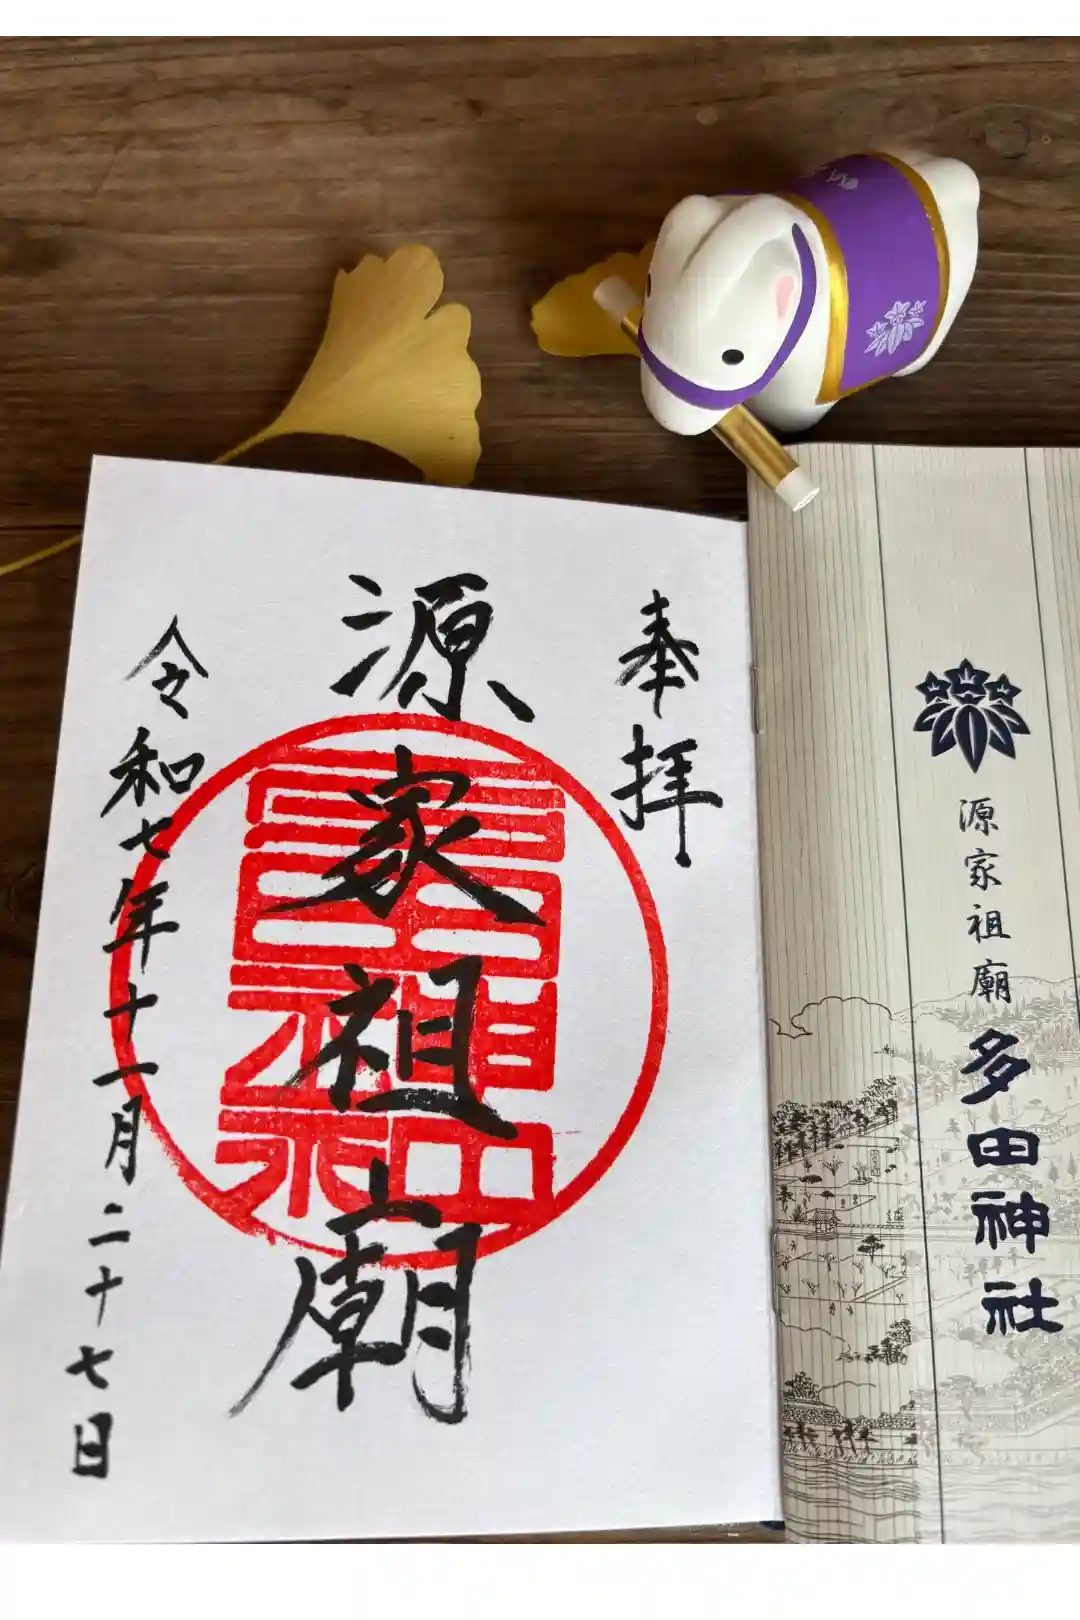 奉拝
源家祖廟
令和七年十一月二十七日
源家祖廟
多田神社